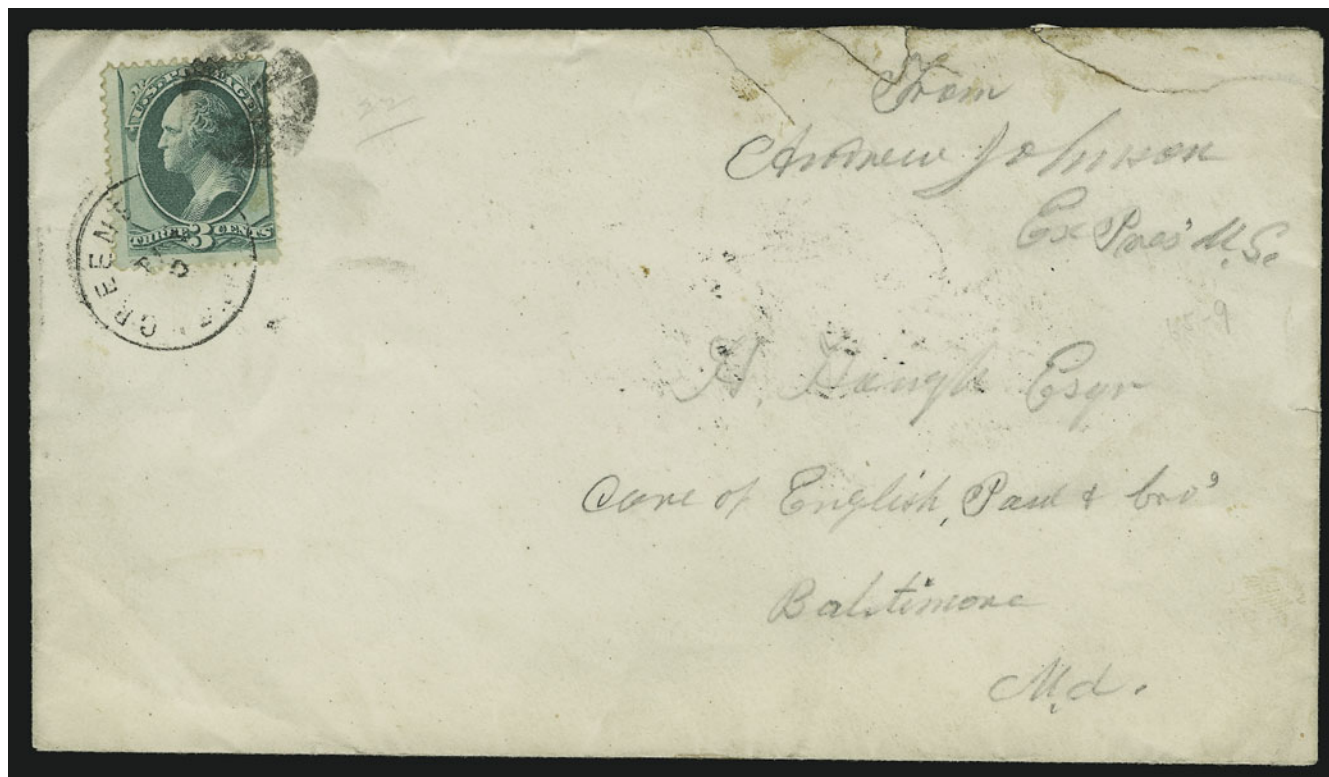 U.S. POSTAGE
THREE 3 CENTS
GREEN
22
From
Andrew Johnson
Ex Pres' U.S.
H. Haugh Esqr
Care of English, Paul & bro'
Baltimore
Md.